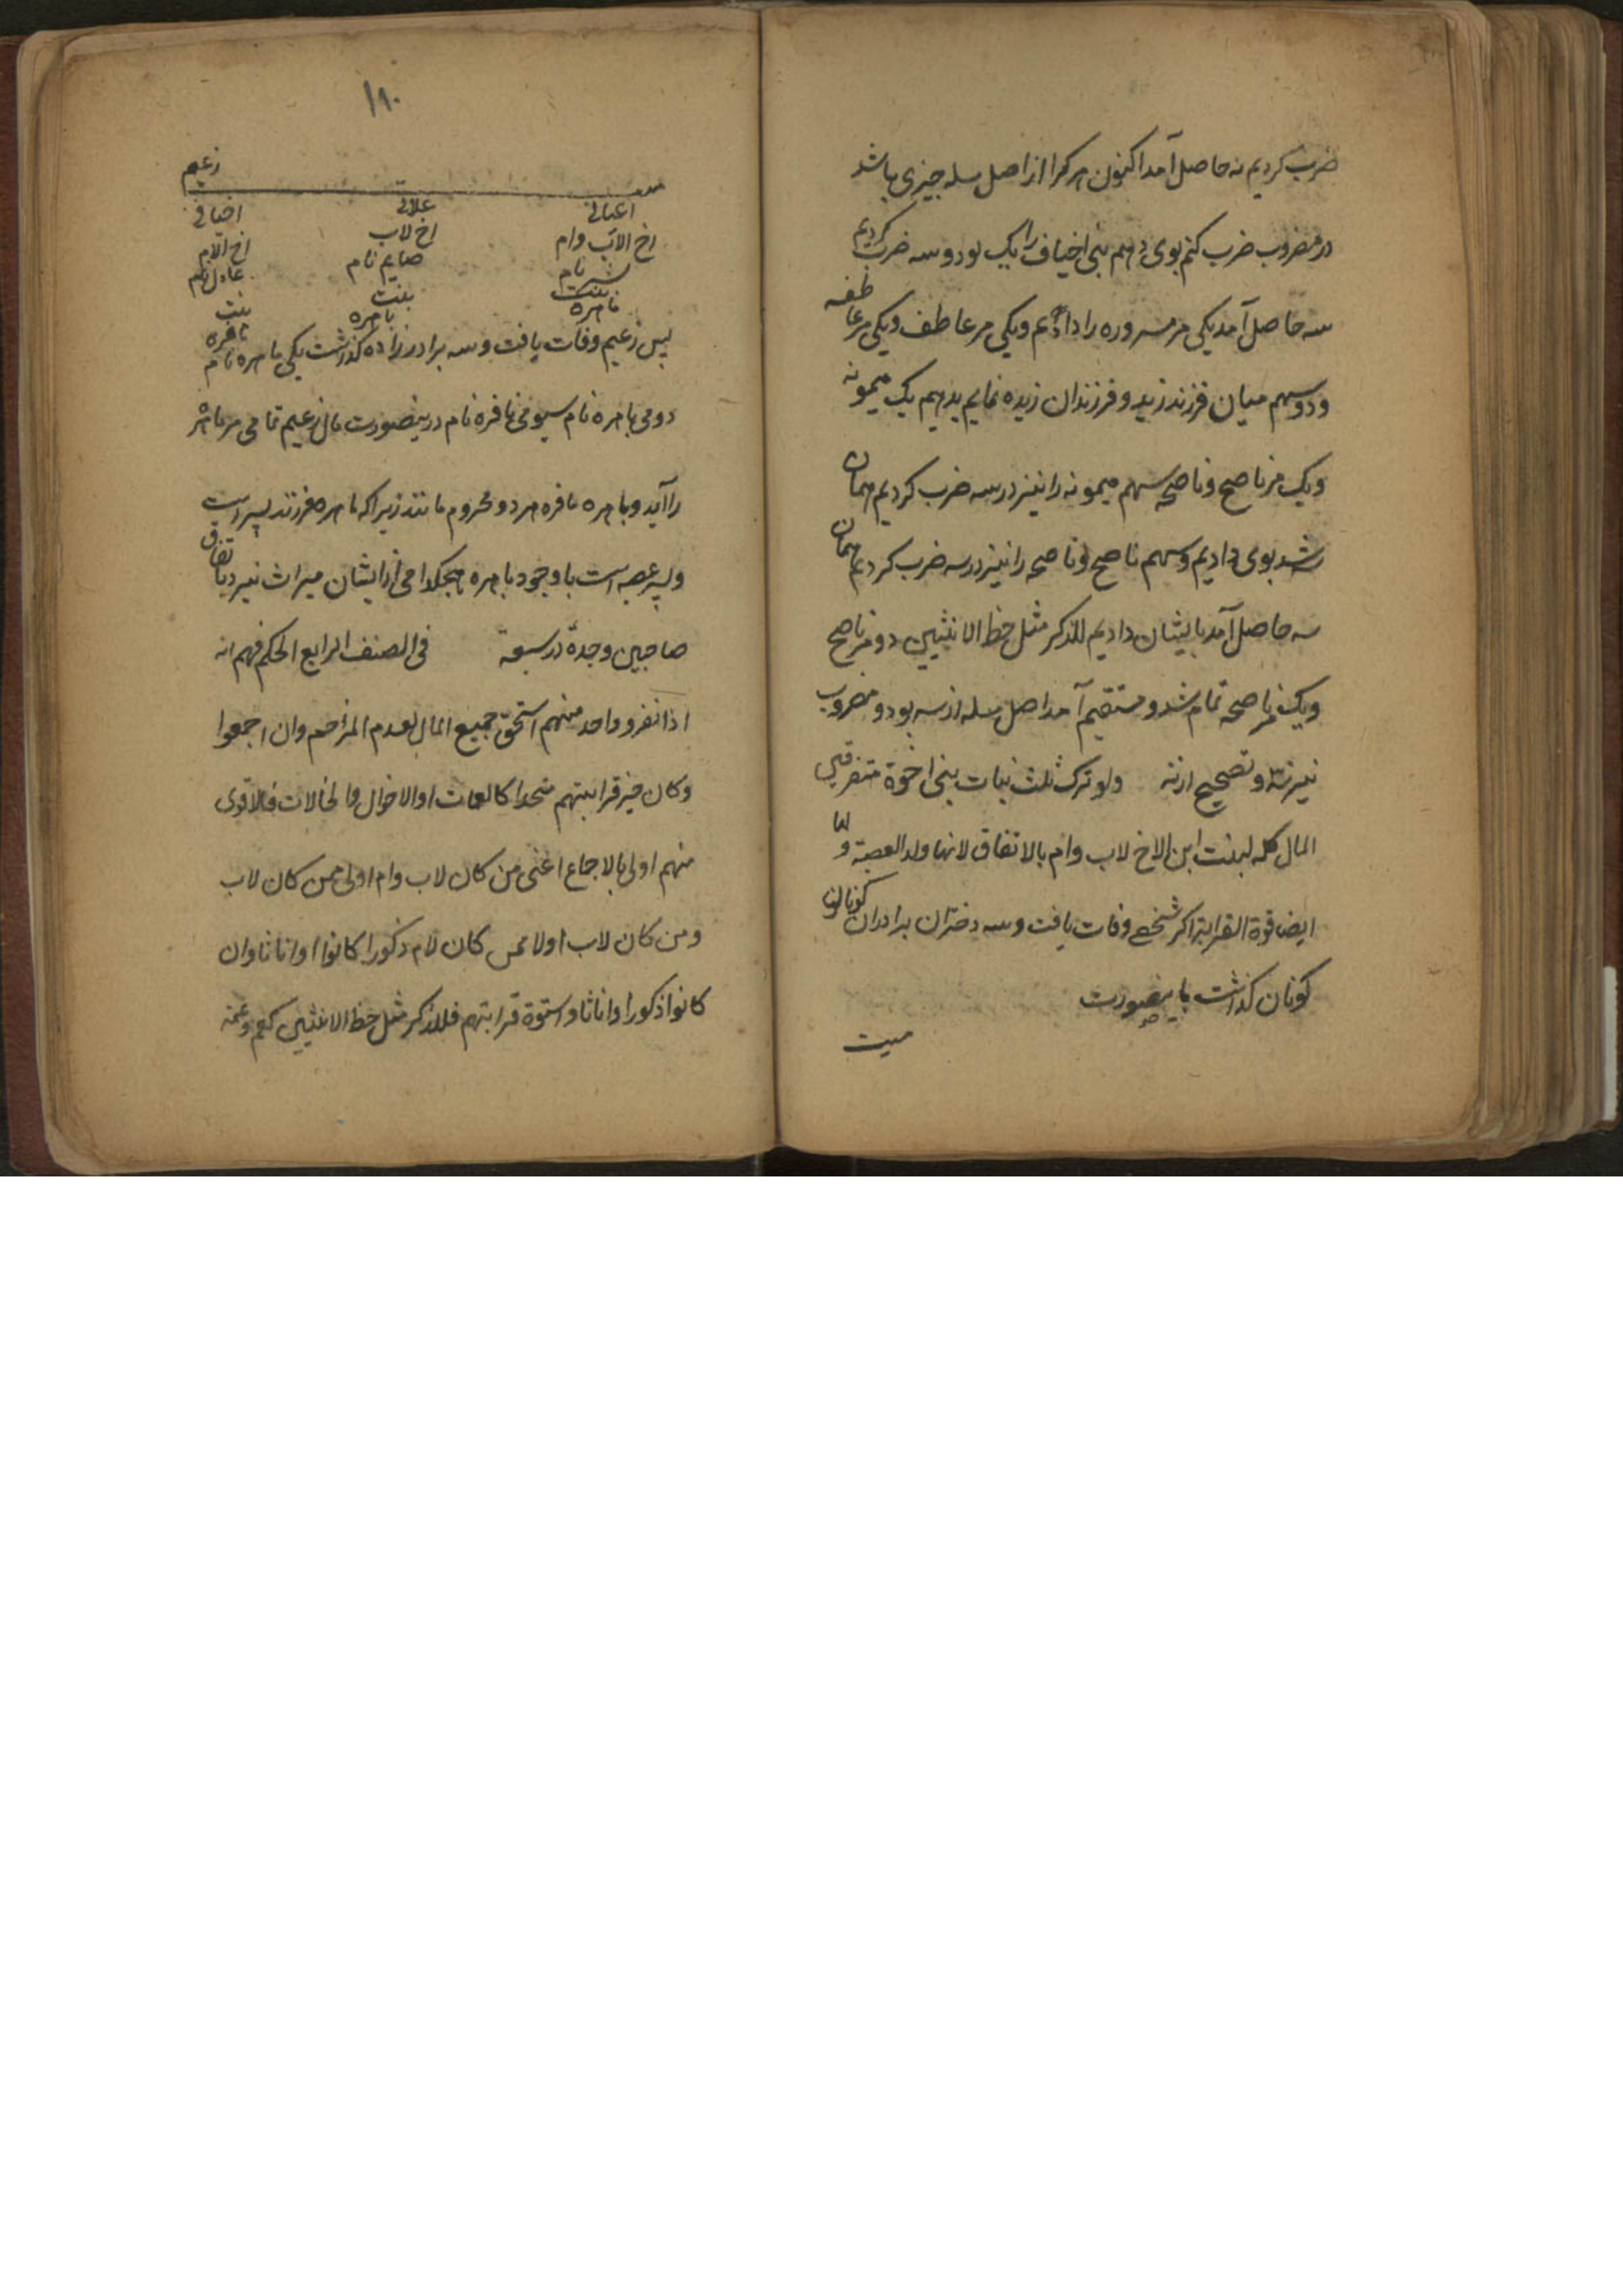 ضرب کردیم نه حاصل آمد اکنون هر کرا از اصل مسله چیزی باشد
در مضروب ضرب کنم بوی دهم بنی اخیاف را یک بود و سه ضرب کردیم
سه حاصل آمد یکی مر مسروره را دادیم ویکی مر عاطف ویکی مر عاطفه
ودو سهم میان فرزند زید و فرزندان زیده نمایم بدهیم یک میمونه
ویک مر ناصح وناصحه سهم میمونه را نیز در سه ضرب کردیم همان
شد بوی دادیم وسهم ناصح وناصحه را نیز در سه ضرب کردیم همان
سه حاصل آمد بایشان دادیم للذکر مثل حظ الانثیین دو مر ناصح
ویک مر ناصحه تمام شد و مستقیم آمد اصل مسله از سه بود و مضروب
نیز سه و تصحیح از نه ولو ترک ثلث بنات بنی اخوة متفرقین
المال کله لبنت ابن الاخ لاب وام بالاتفاق لانها ولد العصبة ولها
ایضا قوة القرابة اکر شخصی وفات یافت وسه دختران برادران کوناکون
کونان کذاشت باینصورت
میت
۱۹۰
زعیم
اعیانی علاتی اخیافی
اخ الاب وام اخ لاب اخ الام
نام صایم نام عادل نام
بنت بنت بنت
ناهره باهره نافره
پس زعیم وفات یافت وسه برادر زاده کذاشت یکی ناهره نام
دومی باهره نام سیومی نافره نام درینصورت مال زعیم تمامی مر ناهره
را آید وباهره نافره هر دو محروم مانند زیرا که ناهره فرزند پسر است
وپسر عصبه است باوجود باهره هیچکدامی از ایشان میراث نبرد باتفاق
صاحبین وجده در سبعة فی الصنف الرابع الحکم فهم انه
اذا انفرد واحد منهم استحق جمیع المال لعدم المزاحم وان اجمعوا
وکان حیز قرابتهم متحدا کالعمات او الاخوال والخالات فالاقوی
منهم اولی بالاجماع اعنی من کان لاب وام اولی ممن کان لاب
ومن کان لاب اولا ممن کان لام ذکورا کانوا او اناثا وان
کانوا ذکورا واناثا واستوة قرابتهم فللذکر مثل حظ الانثیین کعم وعمة